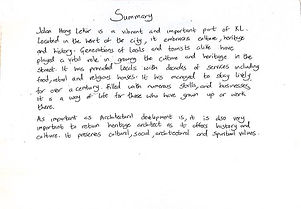 Summary
Jalan Hang Lekir is a vibrant and important part of KL.
Located in the heart of the city, it embraces culture, heritage
and history. Generations of locals and tourists alike have
played a vital role in growing the culture and heritage in the
street. It has provided locals with decades of services including
food, retail and religious houses. It has managed to stay lively
for over a century. Filled with numerous stalls, and businesses,
it is a way of life for those who have grown up or work
there.
As important as Architectural development is, it is also very
important to retain heritage architect as it offers history and
culture. It preserves cultural, social, architectural and spiritual values.